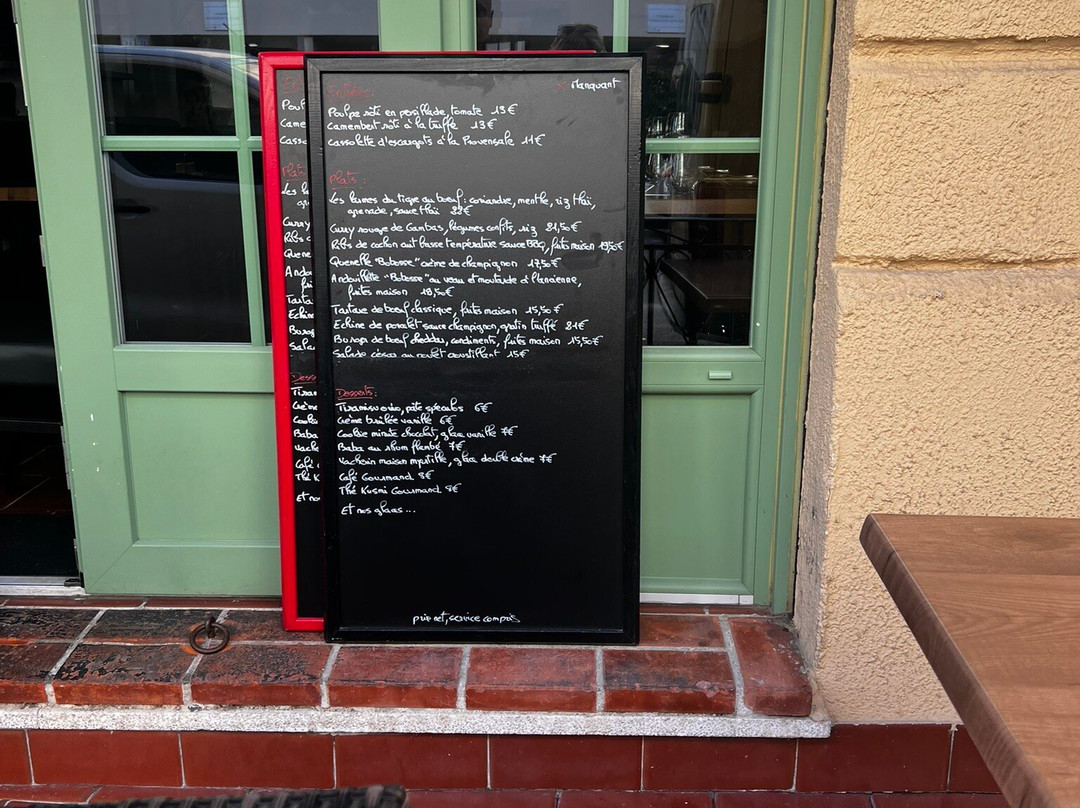 x Manquant
Entrées:
Poulpe rôti en persillade, tomate 13€
Camembert rôti à la truffe 13€
Cassolette d'escargots à la Provensale 11€
Plats:
Les larmes du tigre au bœuf: coriandre, menthe, riz thaï,
grenade, sauce thaï 22€
Curry rouge de Gambas, légumes confits, riz 21,50€
Ribs de cochon cuit basse température sauce BBQ, frites maison 19,50€
Quenelle "Bobosse" crème de champignon 17,50€
Andouillette "Bobosse" au veau et moutarde à l'ancienne,
frites maison 18,50€
Tartare de bœuf classique, frites maison 15,50€
Echine de porcelet sauce champignon, gratin truffé 21€
Burger de bœuf cheddar, condiments, frites maison 15,50€
Salade césar au poulet croustillant 15€
Desserts:
Tiramisu oréo, pâte spéculos 6€
Crème brûlée vanille 6€
Cookie minute chocolat, glace vanille 7€
Baba au rhum flambé 7€
Vachrin maison myrtille, glace double crème 7€
Café Gourmand 8€
Thé Kusmi Gourmand 8€
Et nos glaces...
prix net, service compris
Poul
Came
Casso
Plats
Les l
Curry
Ribs c
Quene
Andou
Tarta
Echin
Burge
Sala
Dess
Tiram
Crème
Cookie
Baba
Vache
Café
Thé K
Et no